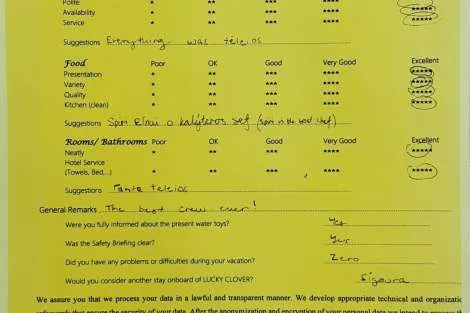 Polite * ** *** **** *****
Availability * ** *** **** *****
Service * ** *** **** *****
Suggestions Everything was teleios
Food Poor OK Good Very Good Excellent
Presentation * ** *** **** *****
Variety * ** *** **** *****
Quality * ** *** **** *****
Kitchen (clean) * ** *** **** *****
Suggestions Spiri Einai o kalyteros sef (Spiri is the best chef)
Rooms/ Bathrooms Poor OK Good Very Good Excellent
Neatly * ** *** **** *****
Hotel Service
(Towels, Bed,...) * ** *** **** *****
Suggestions Panta teleios
General Remarks The best crew ever!
Were you fully informed about the present water toys? Yes
Was the Safety Briefing clear? Yes
Did you have any problems or difficulties during your vacation? Zero
Would you consider another stay onboard of LUCKY CLOVER? Sigoura
We assure you that we process your data in a lawful and transparent manner. We develop appropriate technical and organizatio
safeguards that ensure the security of your data. After the anonymization and encryption of your personal data we intend to process th